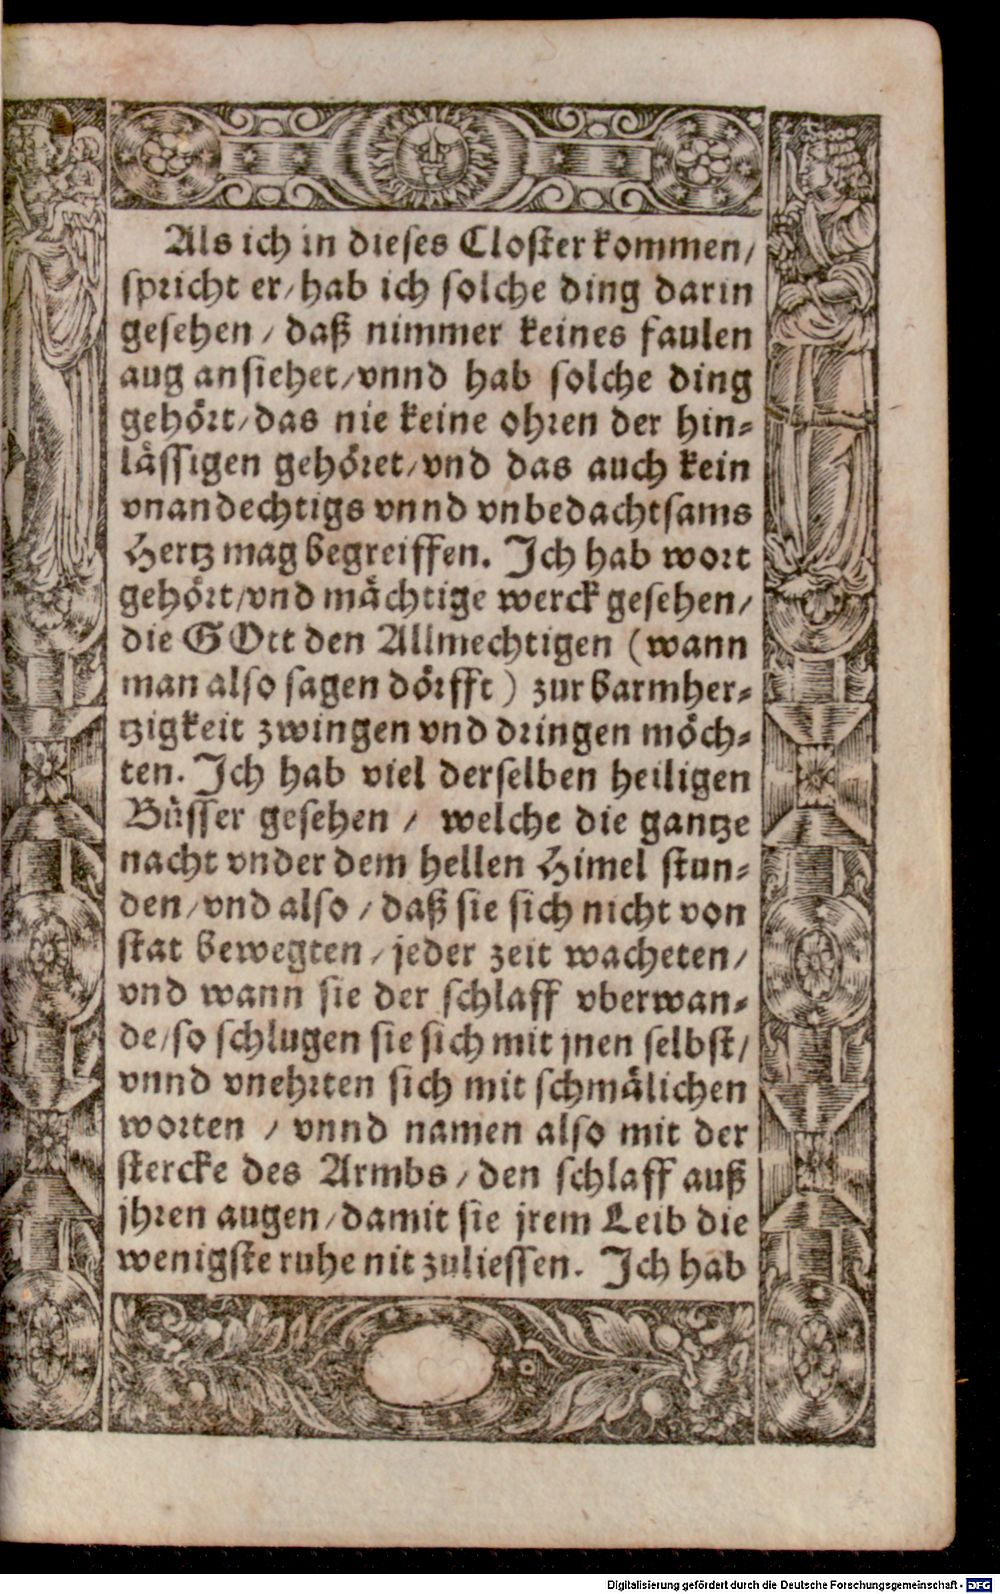 Als ich in dieses Closter kommen/
spricht er/ hab ich solche ding darin
gesehen / daß nimmer keines faulen
aug ansiehet/ vnnd hab solche ding
gehört/ das nie keine ohren der hin-
lässigen gehöret/ vnd das auch kein
vnandechtigs vnnd vnbedachtsams
Hertz mag begreiffen. Ich hab wort
gehört/vnd mächtige werck gesehen/
die GOtt den Allmechtigen (wann
man also sagen dörfft) zur barmher-
tzigkeit zwingen vnd dringen möch-
ten. Ich hab viel derselben heiligen
Büsser gesehen / welche die gantze
nacht vnder dem hellen Himel stun-
den/ vnd also / daß sie sich nicht von
stat bewegten / jeder zeit wacheten/
vnd wann sie der schlaff vberwan-
de/so schlugen sie sich mit jnen selbst/
vnnd vnehrten sich mit schmälichen
worten / vnnd namen also mit der
stercke des Armbs / den schlaff auß
jhren augen / damit sie jrem Leib die
wenigste ruhe nit zuliessen. Ich hab
Digitalisierung gefördert durch die Deutsche Forschungsgemeinschaft - DFG